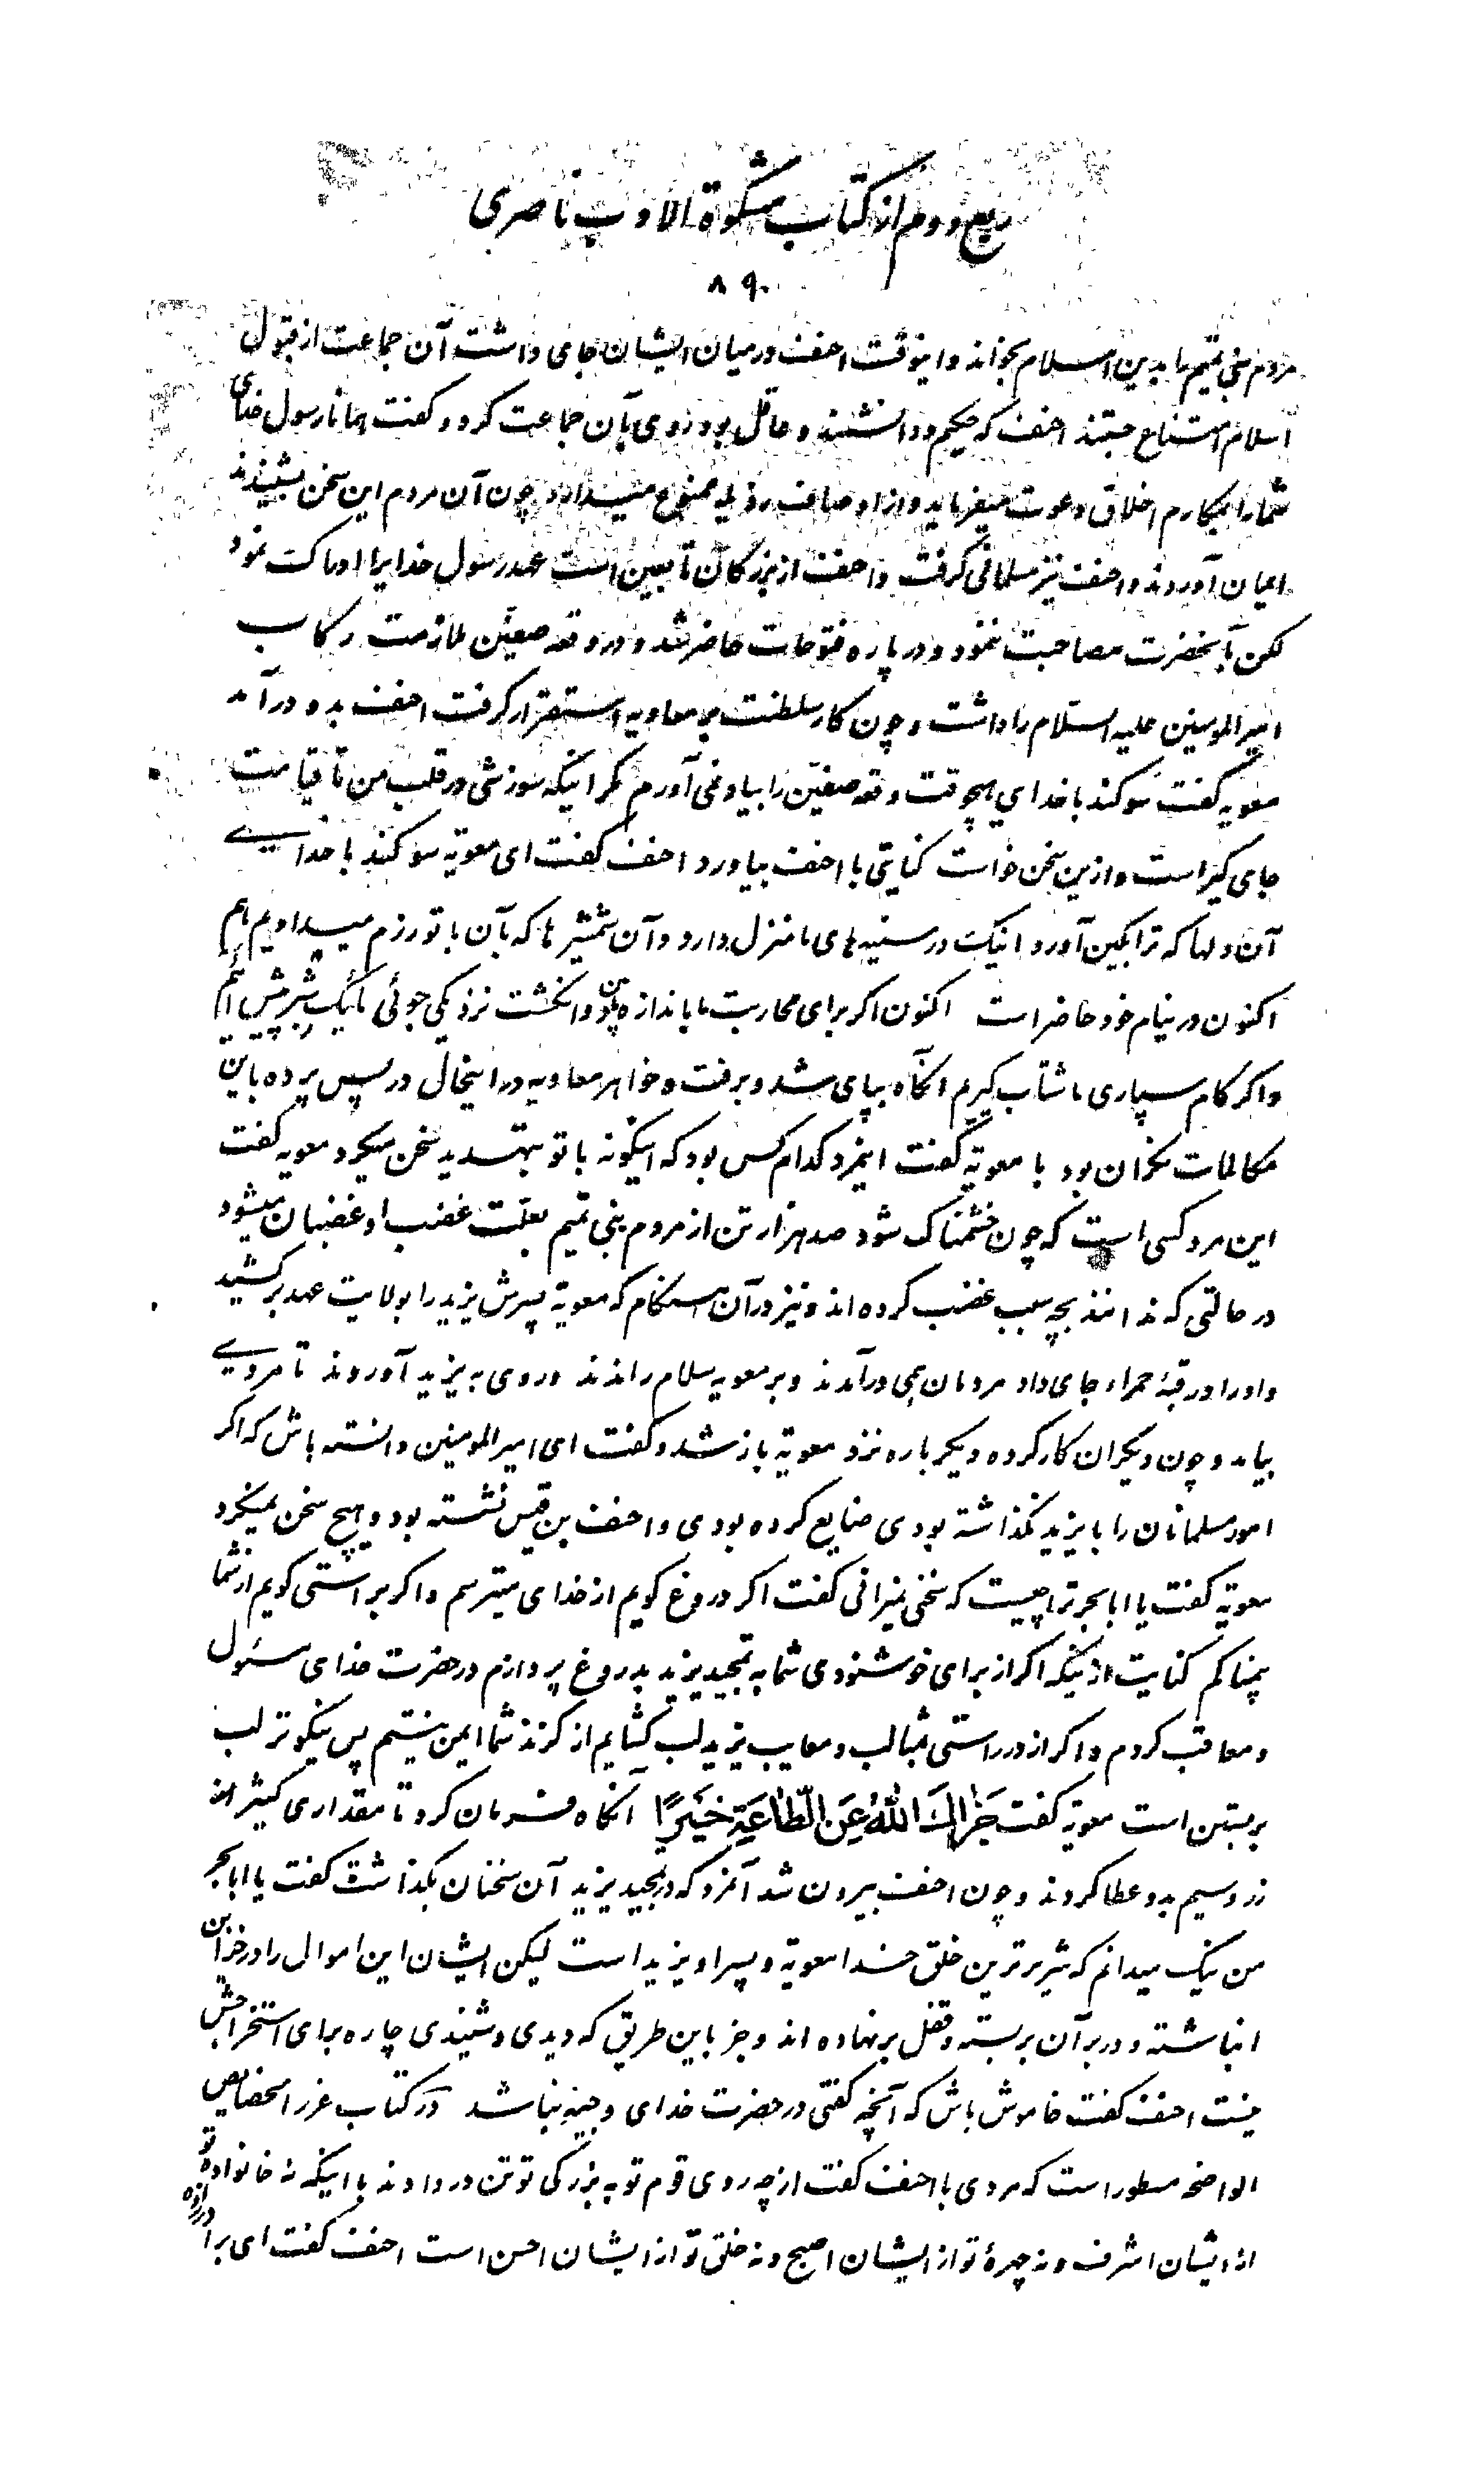 ربع دوم از کتاب مشکوة الادب ناصری
۸۹۰
مردم بنی تمیم را بدین اسلام بخواند و اینوقت احنف در میان ایشان جای داشت آن جماعت از قبول
اسلام امتناع جستند احنف که حکیم و دانشمند و عاقل بود روی بآن جماعت کرد و گفت همانا رسول خدای
شما را بمکارم اخلاق دعوت میفرماید و از اوصاف رذیله ممنوع میدارد چون آن مردم این سخن بشنیدند
ایمان آوردند و احنف نیز مسلمانی گرفت و احنف از بزرگان تابعین است عهد رسول خدایرا ادراکت نمود
لکن بآنحضرت مصاحبت ننمود و در پاره فتوحات حاضر شد و در وقعه صفین ملازمت رکاب
امیر المومنین علیه السلام را داشت و چون کار سلطنت بر معاویه استقرار گرفت احنف بدو در آمد
معویه گفت سوگند با خدای هیچوقت وقعه صفین را بیاد نمی آورم مگر اینکه سوزشی در قلب من تا قیامت
جای گیر است و ازین سخن خواست کنایتی با احنف بیاورد احنف گفت ای معویة سوگند با خدای
آن دلها که ترا بکین آورد اینک در سینه های ما منزل دارد و آن شمشیر ها که بآن با تو رزم میدادیم هم
اکنون در نیام خود حاضر است اکنون اگر برای محاربت ما باندازه بین دو انگشت نزدیکی جوئی ما یک شبر پیش آئیم
و اگر گام سپاری ما شتاب گیریم آنگاه بپای شد و برفت و خواهر معاویه در اینحال در پس پرده باین
مکالمات نگران بود با معویة گفت اینمرد کدام کس بود که اینگونه با تو بتهدید سخن میکرد معویه گفت
این مرد کسی است که چون خشمناک شود صد هزار تن از مردم بنی تمیم بعلت غضب او غضبان میشود
در حالتی که ندانند بچه سبب غضب کرده اند و نیز در آن هنگام که معویة پسرش یزید را بولایت عهد برکشید
و او را در قبهٔ حمراء جای داد مردمان همی در آمدند و بر معویه سلام راندند و روی به یزید آوردند تا مردی
بیامد و چون دیگران کار کرده دیگر باره نزد معویة باز شد و گفت ای امیر المومنین دانسته باش که اگر
امور مسلمانان را با یزید نگذاشته بودی ضایع کرده بودی و احنف بن قیس نشسته بود و هیچ سخن نمیکرد
معویة گفت یا ابا بحر ترا چیست که سخنی نمیرانی گفت اگر دروغ گویم از خدای میترسم و اگر براستی گویم از شما
بیمناکم کنایت از اینکه اگر از برای خوشنودی شما به تمجید یزید بدروغ پردازم در حضرت خدای مسئول
و معاقب گردم و اگر از در راستی بمثالب و معایب یزید لب گشایم از گزند شما ایمن نیستم پس نیکوتر لب
بربستن است معویة گفت جَزاكَ اللهُ عَنِ الطّاعَةِ خَيرًا آنگاه فرمان کرد تا مقداری کثیر از
زر و سیم بدو عطا کردند و چون احنف بیرون شد آنمرد که در تمجید یزید آن سخنان بگذاشت گفت یا ابا بحر
من نیک میدانم که شریرترین خلق خدا معویة و پسر او یزید است لیکن ایشان این اموال را در خزاین
انباشته و در بر آن بربسته و قفل برنهاده اند و جز باین طریق که دیدی و شنیدی چاره برای استخراجش
نیست احنف گفت خاموش باش که آنچه گفتی در حضرت خدای وجیه نباشد در کتاب غرر الخصایص
الواضحه مسطور است که مردی با احنف گفت از چه روی قوم تو به بزرگی تو تن در دادند با اینکه نه خانواده تو
از ایشان اشرف و نه چهرهٔ تو از ایشان اصبح و نه خلق تو از ایشان احسن است احنف گفت ای برادرزاده